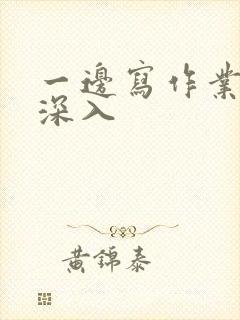 一邊寫作業
深入
黃錦泰